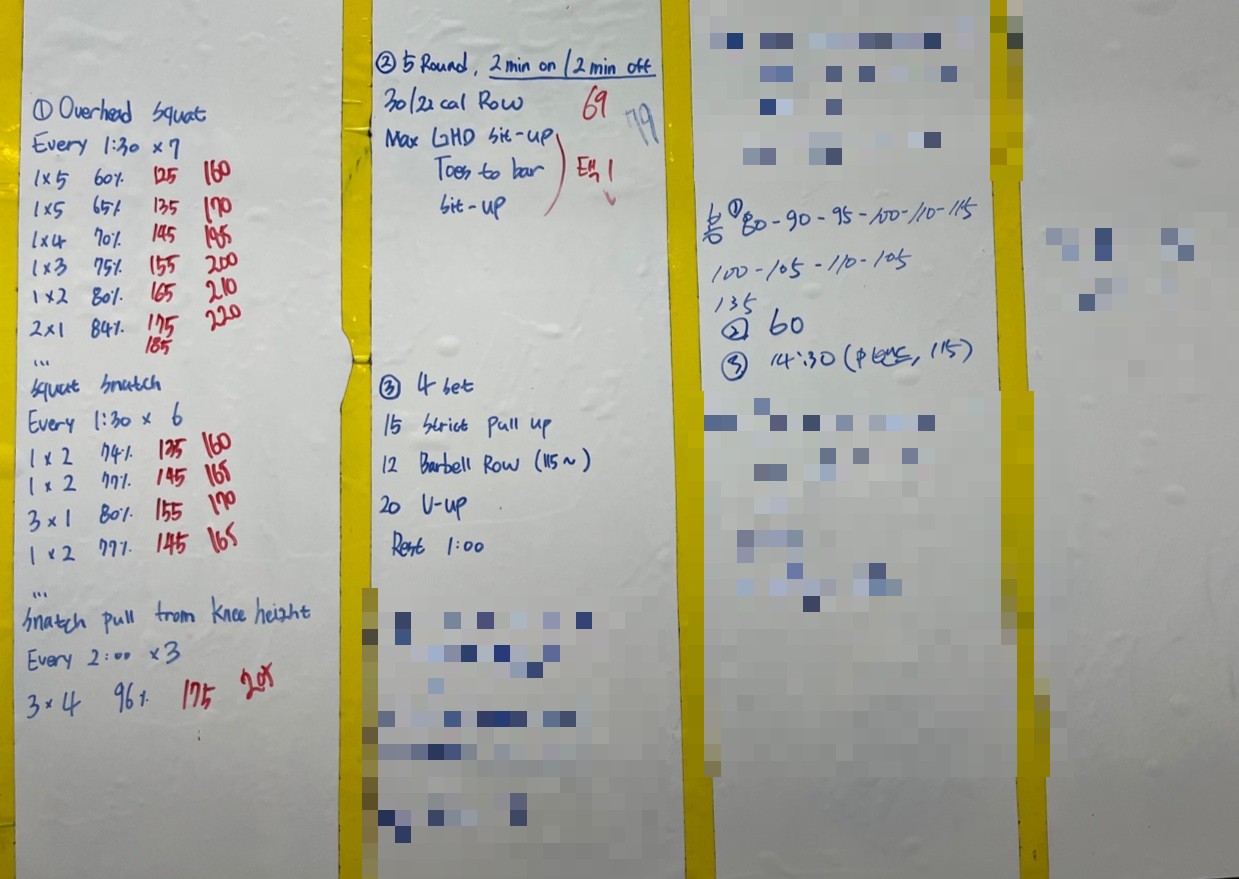 ① Overhead Squat
Every 1:30 × 7
1×5 60% 125 160
1×5 65% 135 170
1×4 70% 145 185
1×3 75% 155 200
1×2 80% 165 210
2×1 84% 175 220
185
...
Squat Snatch
Every 1:30 × 6
1×2 74% 135 160
1×2 77% 145 165
3×1 80% 155 170
1×2 77% 145 165
...
Snatch pull from knee height
Every 2:00 ×3
3×4 96% 175 205
② 5 Round, 2 min on / 2 min off
30/22 cal Row 69 79
Max GHD sit-up
Toes to bar 택 1
sit-up
③ 4 set
15 Strict pull up
12 Barbell Row (115~)
20 V-up
Rest 1:00
봉 ① 80-90-95-100-110-115
100-105-110-105
135
② 60
③ 14:30 ( 115)